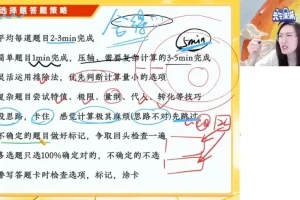 选择题答题策略
平均每道题目2-3min完成
简单题目1min完成，压轴、需要复杂计算的3-5min完成
灵活运用排除法，优先判断计算量小的选项
复杂题目尝试特值、极限、量纲、代入、转化等技巧
没思路、卡住、感觉计算极其麻烦(思路不对)先跳过
不确定的题目做好标记，争取回头检查一遍
多选题只选100%确定对的，不确定的不选
誊写答题卡时检查选项，标记、涂卡
5min